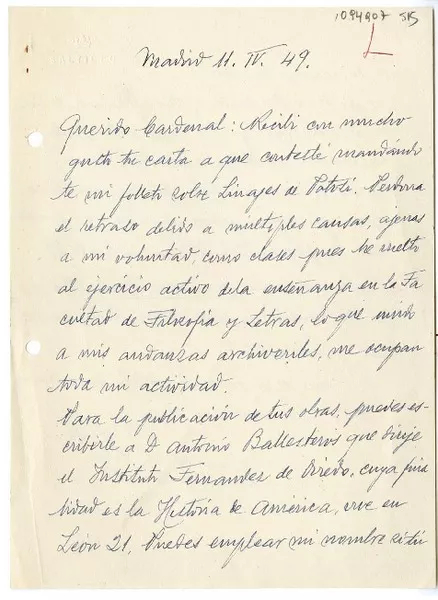 1094907 SIS
Madrid 11. IV. 49.
Querido Cardenal: Recibí con mucho
gusto tu carta a que contesté mandándo
te mi folleto sobre Linajes de Potosí. Perdona
el retraso debido a multiples causas, ajenas
a mi voluntad, como clases pues he vuelto
al ejercicio activo de la enseñanza en la Fa
cultad de Filosofía y Letras, lo que unido
a mis andanzas archiveriles, me ocupan
toda mi actividad.
Para la publicación de tus obras, puedes es-
cribirle a D Antonio Ballesteros que dirije
el Instituto Fernandez de Oviedo, cuya fina
lidad es la Historia de América, vive en
León 21, Puedes emplear mi nombre si tú